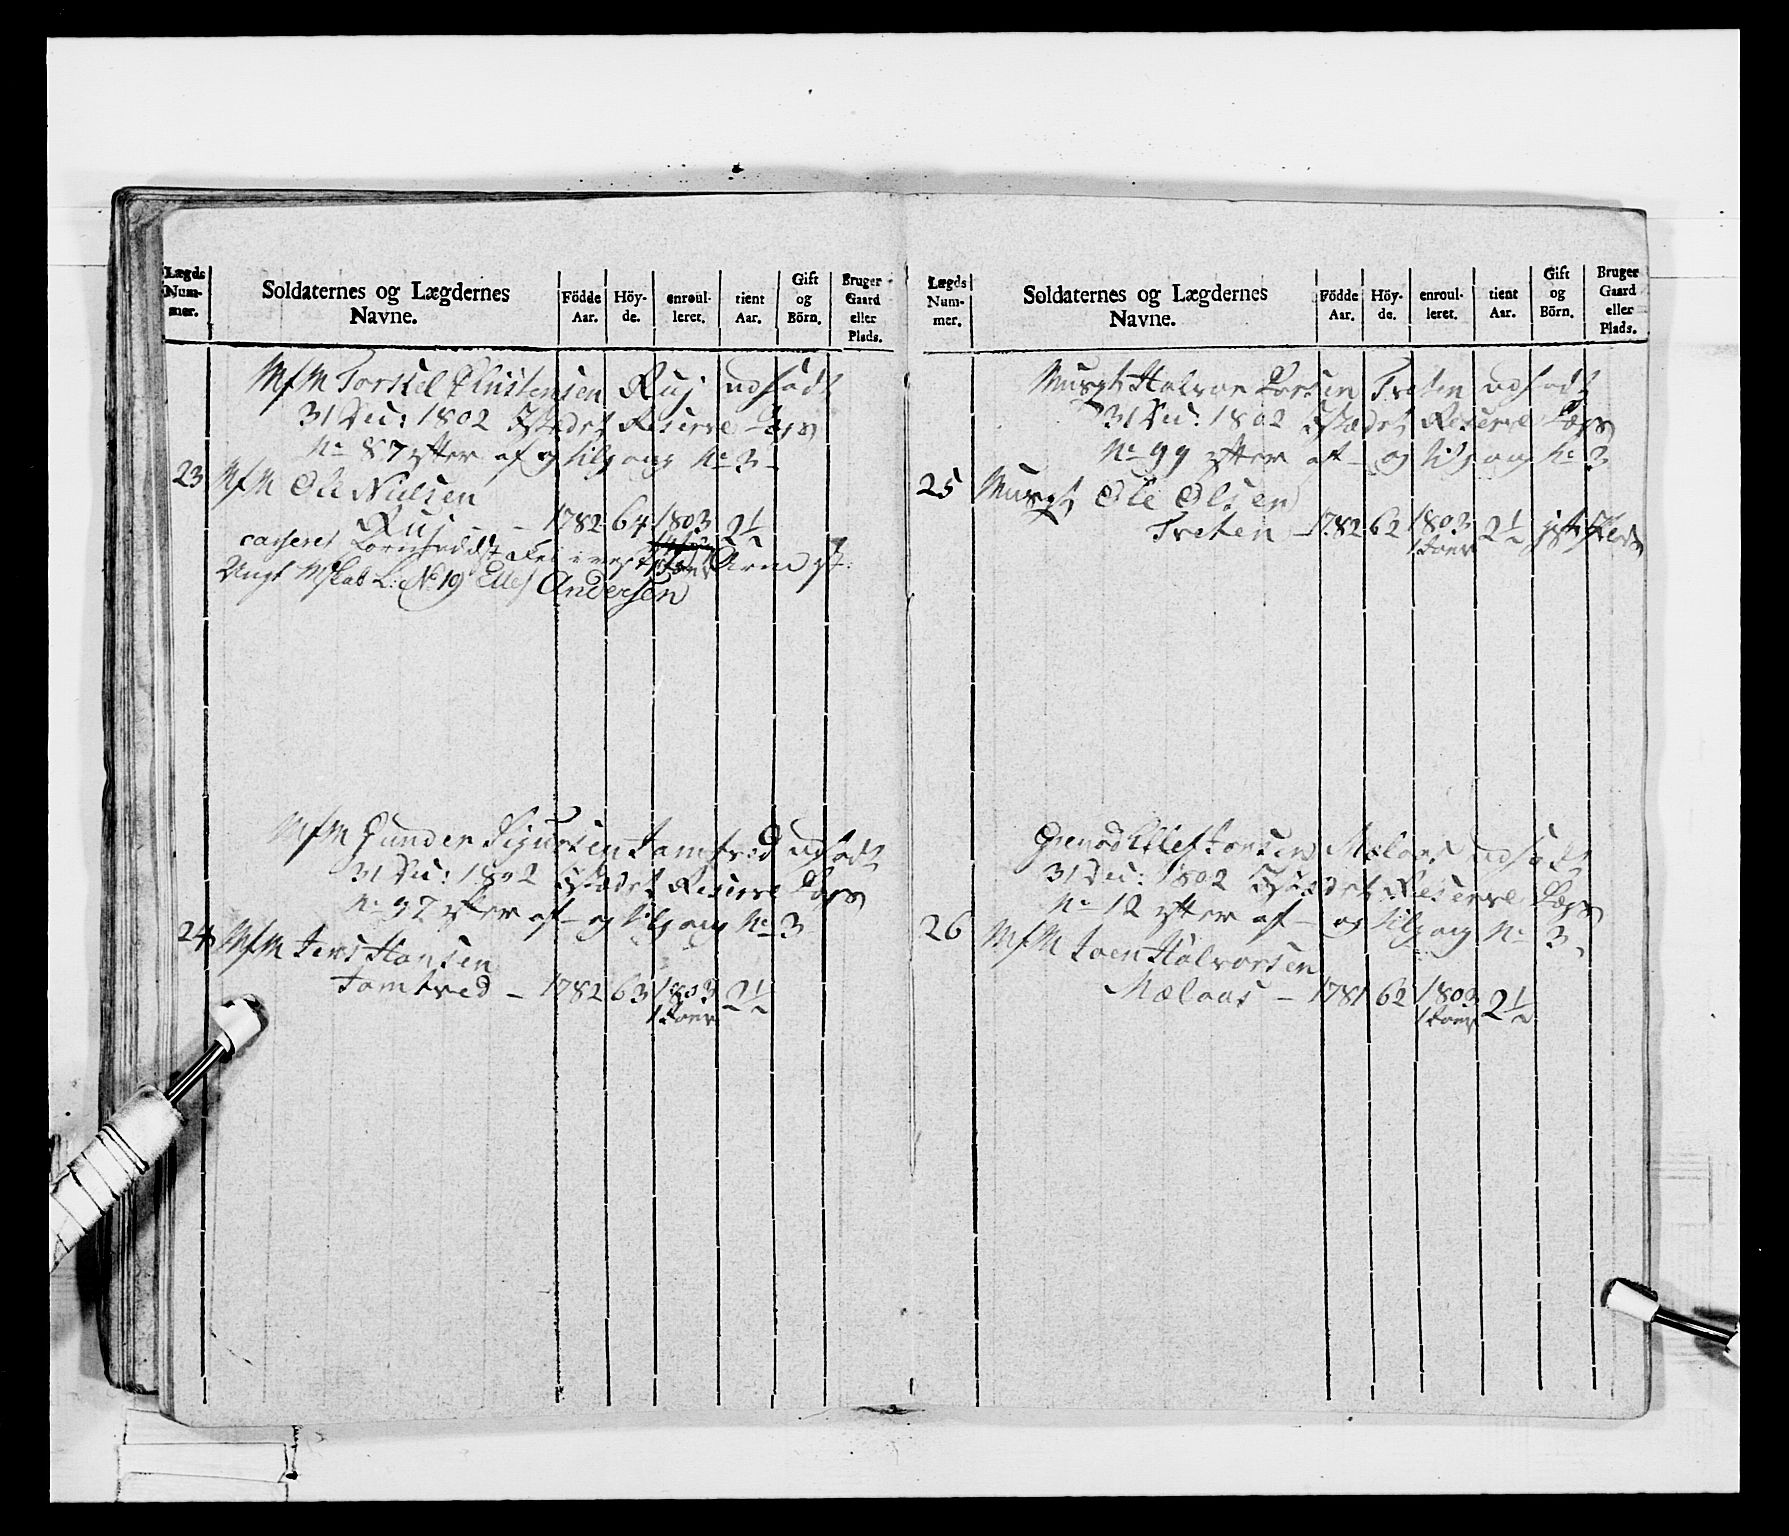 Lægds Num- mer.
Soldaternes og Lægdernes Navne.
Födde Aar.
Höy- de.
enroul- leret.
tient Aar.
Gift og Börn.
Bruger Gaard eller Plads.
MfM Torkel Christensen Ruj udsadt
31 Dec: 1802 Reserve
No 87 efter af og tilgang No 3
23 MfM Ole Nielsen
Ruj - 1782 64 1803 2½
casseret
Ungt Mskab L: No 19 Ellef Andersen
MfM Gunder Sigursen Jamtved udsadt
31 Dec: 1802 Reserve Corps
No 92 efter af - og tilgang No 3
24 MfM Jens Hansen
Jamtved - 1782 63 1803 2½
Lægds Num- mer.
Soldaternes og Lægdernes Navne.
Födde Aar.
Höy- de.
enroul- leret.
tient Aar.
Gift og Börn.
Bruger Gaard eller Plads.
Musqt Halvor Treten udsadt
31 Dec: 1802 Reserve Corps
No 99 efter af - og tilgang No 3
25 Musqt Ole Olsen
Treten - 1782 62 1803 2½ gift Plads
Grenad Ellef Jansen Mælaas udsadt
31 Dec: 1802 Reserve Corps
No 12 efter af - og tilgang No 3
26 MfM Joen Halvorsen
Mælaas - 1781 62 1803 2½